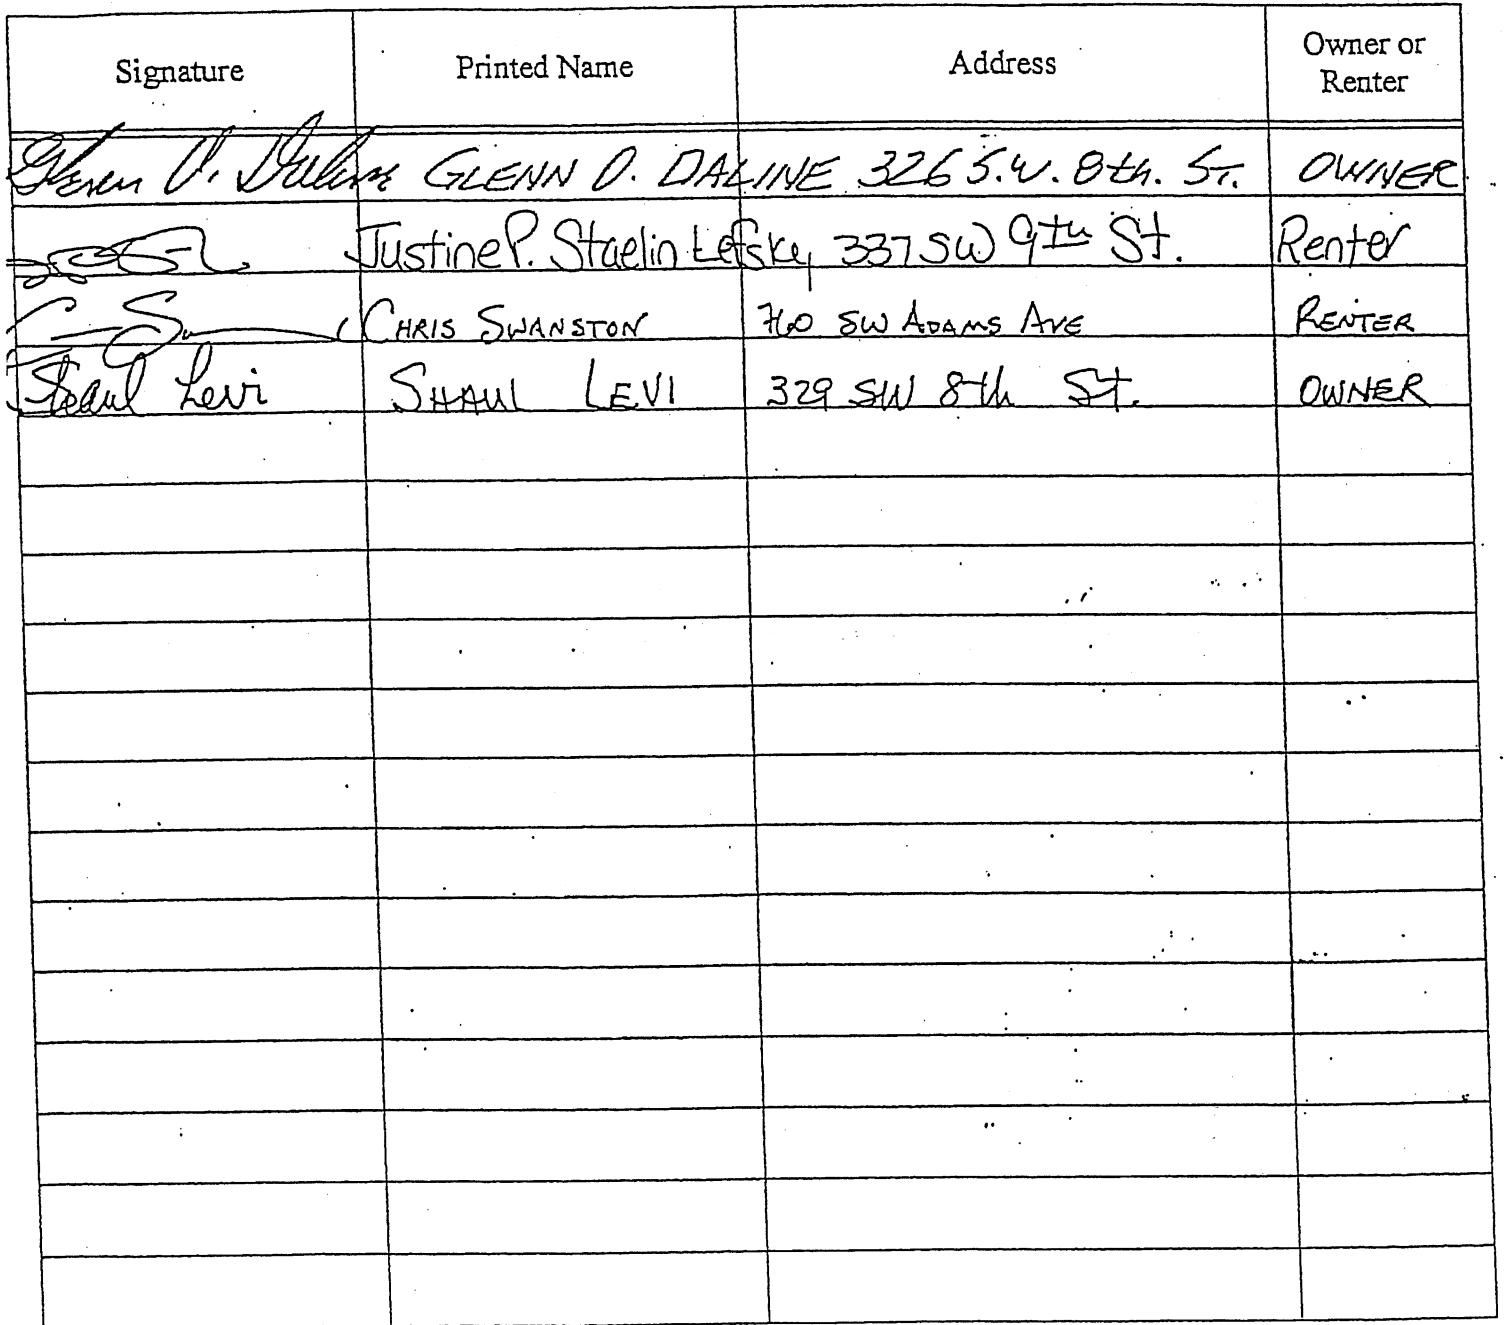 Signature Printed Name Address Owner or Renter
Glenn O. Daline GLENN O. DALINE 326 S.W. 8th. St. OWNER
Justine P. Staelin Lefsky 337 SW 9th St. Renter
CHRIS SWANSTON 760 SW ADAMS AVE RENTER
Shaul Levi SHAUL LEVI 329 SW 8th St. OWNER